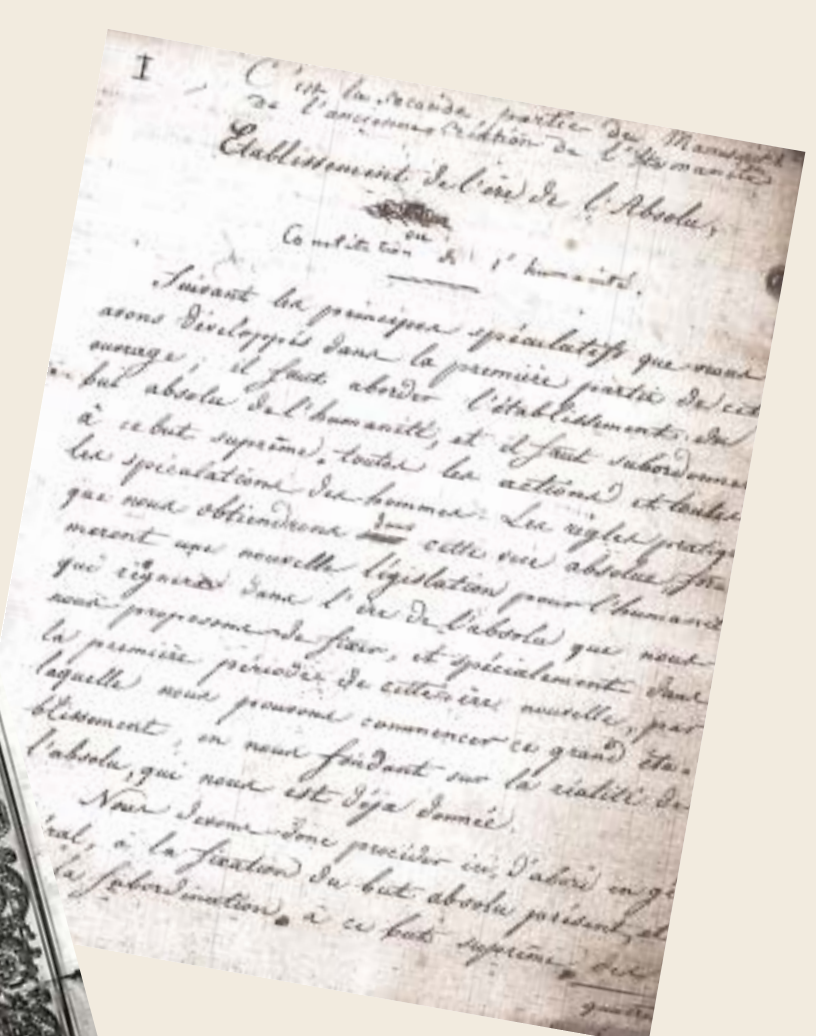 I
C'est la seconde partie du Manuscrit
de l'ancienne Création de l'Humanité
Etablissement de l'ère de l'Absolu,
ou
Constitution de l'humanité.
Suivant les principes spéculatifs que nous
avons développés dans la première partie de cet
ouvrage, il faut aborder l'établissement du
but absolu de l'humanité, et il faut subordonner
à ce but suprême, toutes les actions et toutes
les spéculations des hommes. Les règles pratiq
que nous obtiendrons dans cette vue absolue, for
meront une nouvelle législation pour l'humanité
que règnera dans l'ère de l'absolu que nous
nous proposons de fixer, et spécialement dans
la première periode de cette ère nouvelle, par
laquelle nous pouvons commencer ce grand éta-
blissement, en nous fondant sur la réalité de
l'absolu, qui nous est déja donnée.
Nous devons donc procéder ici, d'abord en gé
ral, à la fixation du but absolu présent, et
la subordination, à ce but suprême, des